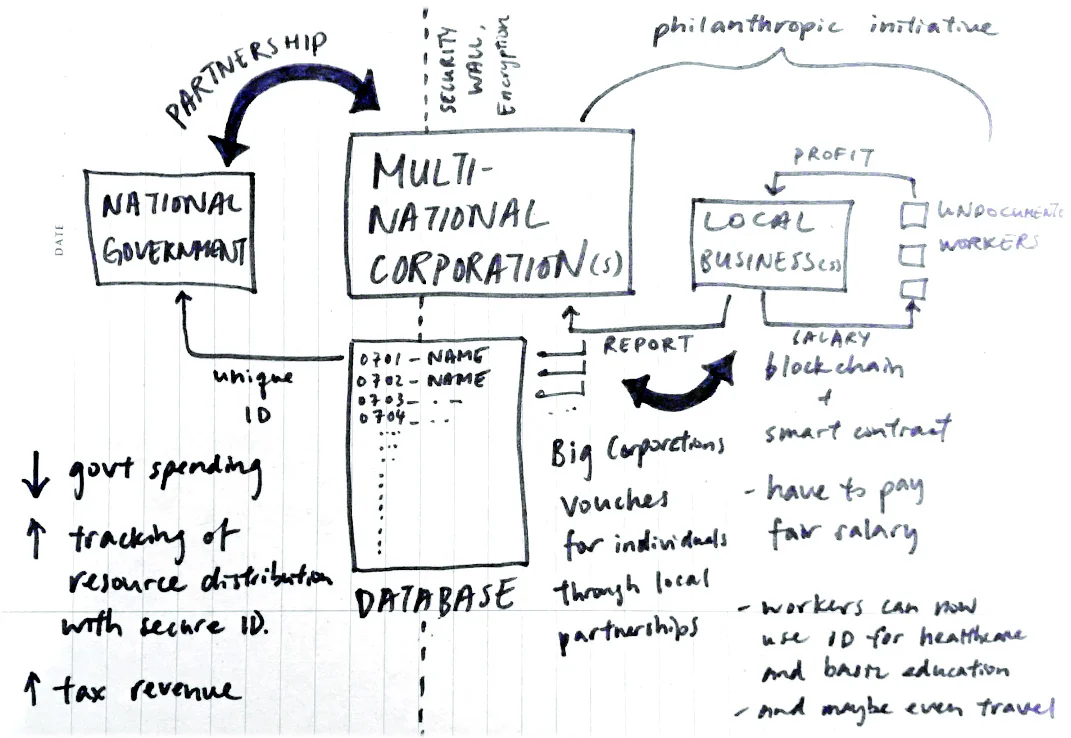 PARTNERSHIP
SECURITY
WALL,
Encryption
philanthropic initiative
DATE
NATIONAL
GOVERNMENT
MULTI-
NATIONAL
CORPORATION(s)
PROFIT
LOCAL
BUSINESS(es)
UNDOCUMENTE
WORKERS
unique
ID
0701 - NAME
0702 - NAME
0703 - . -
0704 - . .
DATABASE
REPORT
SALARY
blockchain
+
smart contract
- have to pay
fair salary
- workers can now
use ID for healthcare
and basic education
- and maybe even travel
Big Corporations
vouches
for individuals
through local
partnerships
↓ govt spending
↑ tracking of
resource distribution
with secure ID.
↑ tax revenue